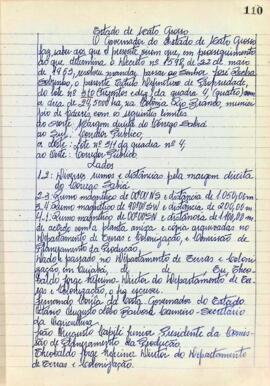 110
Estado de Mato Grosso
O Governador do Estado de Mato Grosso
faz saber aos que o presente virem que, em prosseguimento
ao que determina o Decreto nº 1598, de 22 de maio
de 1953, resolveu mandar passar ao Senhor José Rocha
o presente Titulo Definitivo de Propriedade,
do lote nº 310 (trezentos e dez) da quadra 4 (quatro) com
a área de 24,5000 ha, na Colonia Rio Branco, municí
pio de com os seguintes limites
ao Norte: Margem direita do Corrego Sabiá
ao Sul: Corredor Publico
a Leste: Lote nº 311 da quadra nº 4;
ao Oeste: Corredor Publico
Lados
1.2: Diversos rumos e distancias pela margem direita
do Corrego Sabiá
2.3: Rumo magnetico de 00º00'NS e distancia de 1.050,00m
3.4: Rumo magnetico de 90º00'SW e distancia de 200,00m
4.1: Rumo magnetico de 00º00'SN e distancia de 1.400,00m
de acordo com a planta anexa e cópia arquivadas no
Departamento de Terras e Colonização, e Comissão de
Planejamento da Produção.
Dado e passado no Departamento de Terras e Coloni-
zação em Cuiabá, de de Eu, Theo-
baldo Jorge Diretor do Departamento de Ter-
ras e Colonização, o fiz escrever.
Fernando Corrêa da Costa, Governador do Estado
Carneiro - Secretário
da Agricultura
João Augusto Capilé Junior, Presidente da Comis-
são de Planejamento da Produção
Theobaldo Jorge Diretor do Departamento
de Terras e Colonização.